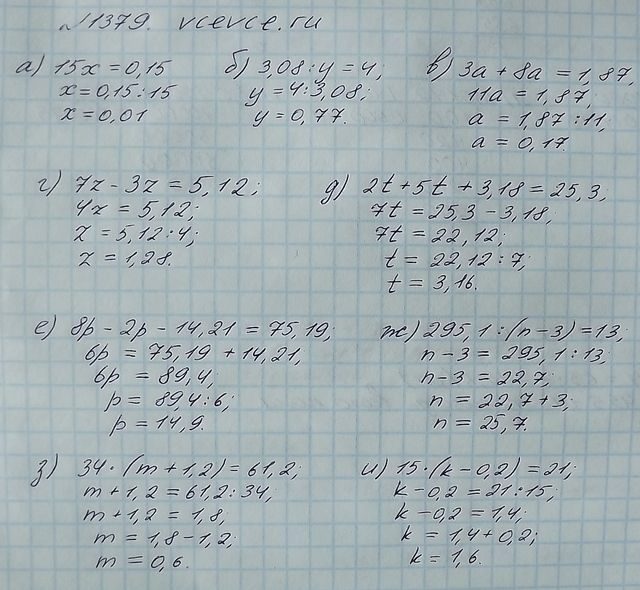 №1379. vcevce.ru
а) 15x = 0,15
x = 0,15 : 15
x = 0,01
б) 3,08 : y = 4;
y = 4 : 3,08;
y = 0,77.
в) 3a + 8a = 1,87,
11a = 1,87,
a = 1,87 : 11,
a = 0,17.
г) 7z - 3z = 5,12;
4z = 5,12;
z = 5,12 : 4;
z = 1,28.
д) 2t + 5t + 3,18 = 25,3;
7t = 25,3 - 3,18,
7t = 22,12;
t = 22,12 : 7;
t = 3,16.
е) 8p - 2p - 14,21 = 75,19;
6p = 75,19 + 14,21,
6p = 89,4;
p = 89,4 : 6;
p = 14,9.
ж) 295,1 : (n - 3) = 13;
n - 3 = 295,1 : 13;
n - 3 = 22,7;
n = 22,7 + 3;
n = 25,7.
з) 34 · (m + 1,2) = 61,2;
m + 1,2 = 61,2 : 34,
m + 1,2 = 1,8,
m = 1,8 - 1,2;
m = 0,6.
и) 15 · (k - 0,2) = 21;
k - 0,2 = 21 : 15;
k - 0,2 = 1,4;
k = 1,4 + 0,2;
k = 1,6.